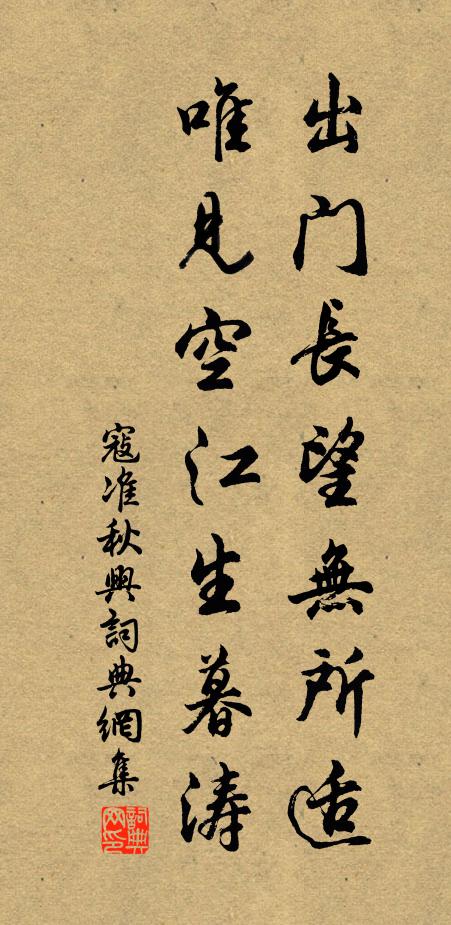 出門長望無所适
唯見空江生暮涛
寇准秋興詞典網集
詞典网印